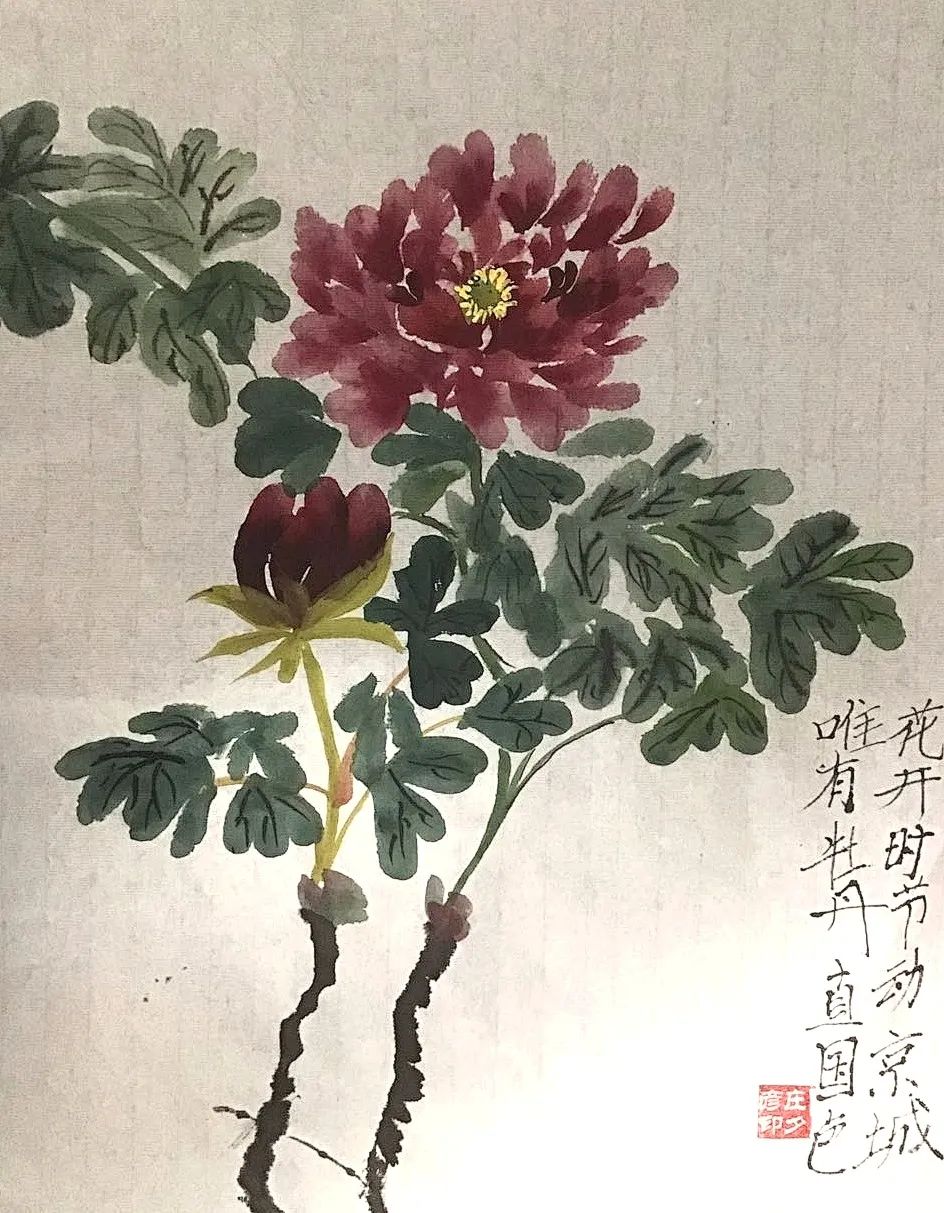 花开时节动京城
唯有牡丹直国色